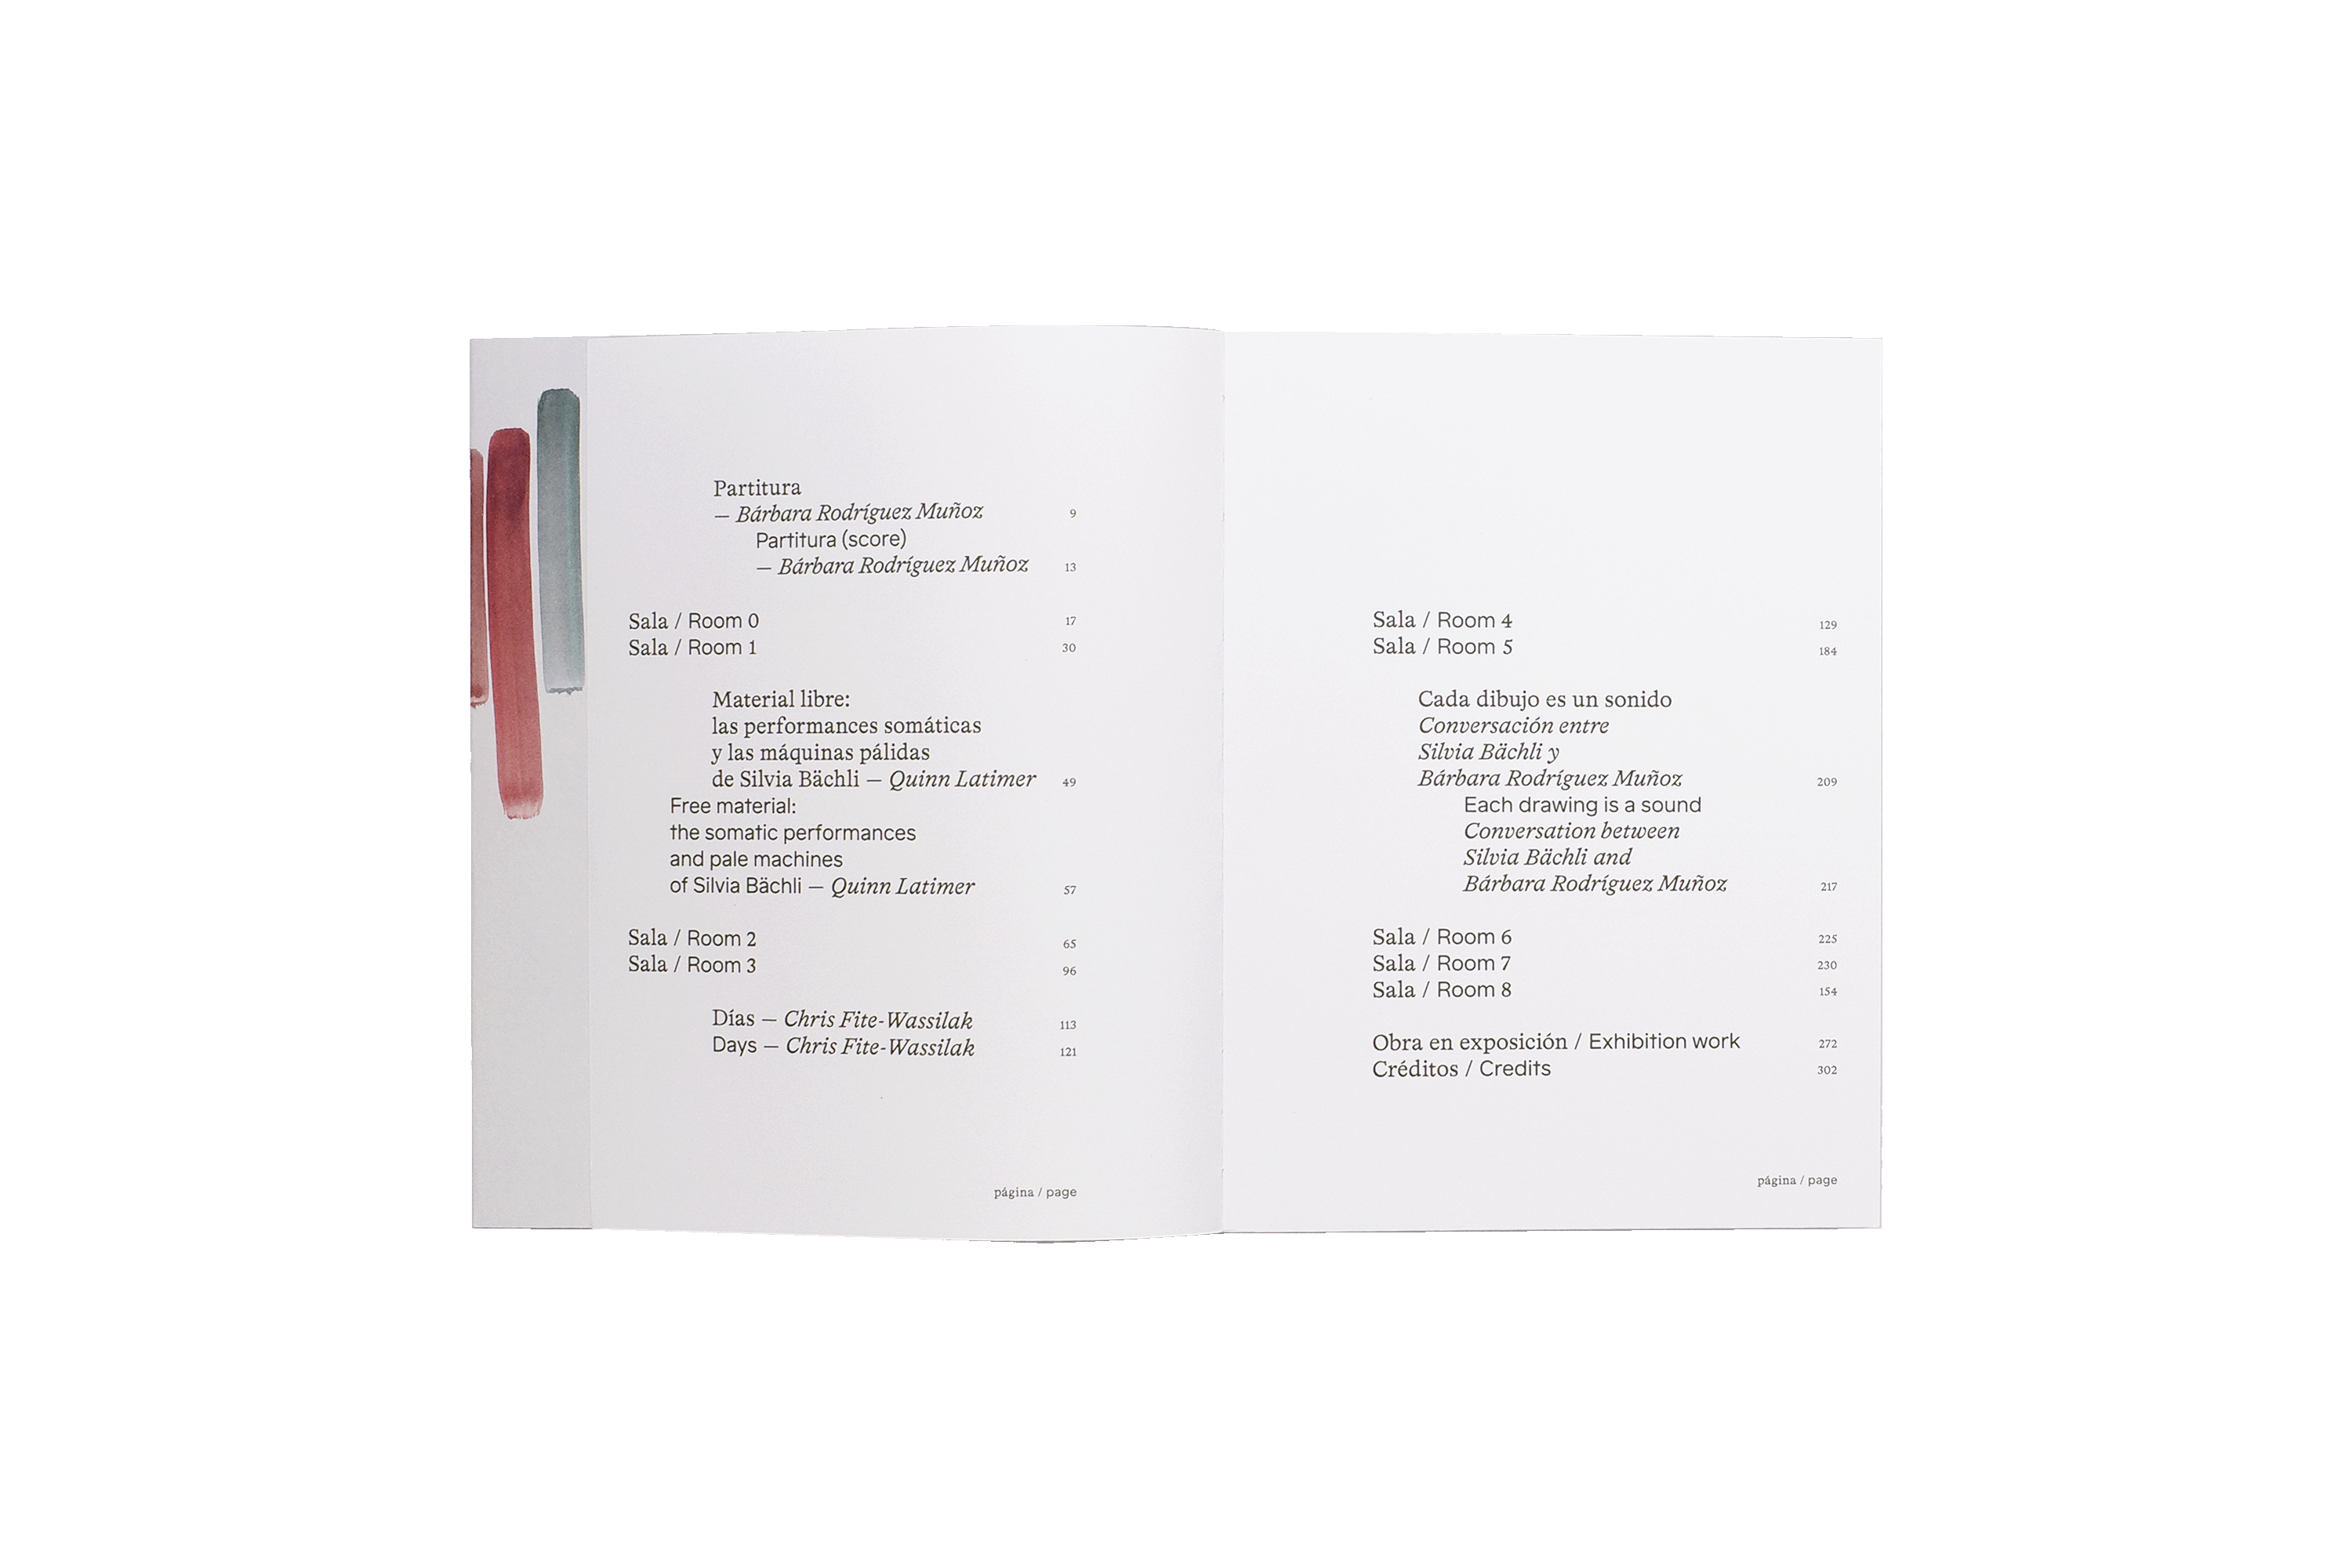 Partitura
— Bárbara Rodríguez Muñoz 9
Partitura (score)
— Bárbara Rodríguez Muñoz 13
Sala / Room 0 17
Sala / Room 1 30
Material libre:
las performances somáticas
y las máquinas pálidas
de Silvia Bächli — Quinn Latimer 49
Free material:
the somatic performances
and pale machines
of Silvia Bächli — Quinn Latimer 57
Sala / Room 2 65
Sala / Room 3 96
Días — Chris Fite-Wassilak 113
Days — Chris Fite-Wassilak 121
página / page
Sala / Room 4 129
Sala / Room 5 184
Cada dibujo es un sonido
Conversación entre
Silvia Bächli y
Bárbara Rodríguez Muñoz 209
Each drawing is a sound
Conversation between
Silvia Bächli and
Bárbara Rodríguez Muñoz 217
Sala / Room 6 225
Sala / Room 7 230
Sala / Room 8 154
Obra en exposición / Exhibition work 272
Créditos / Credits 302
página / page